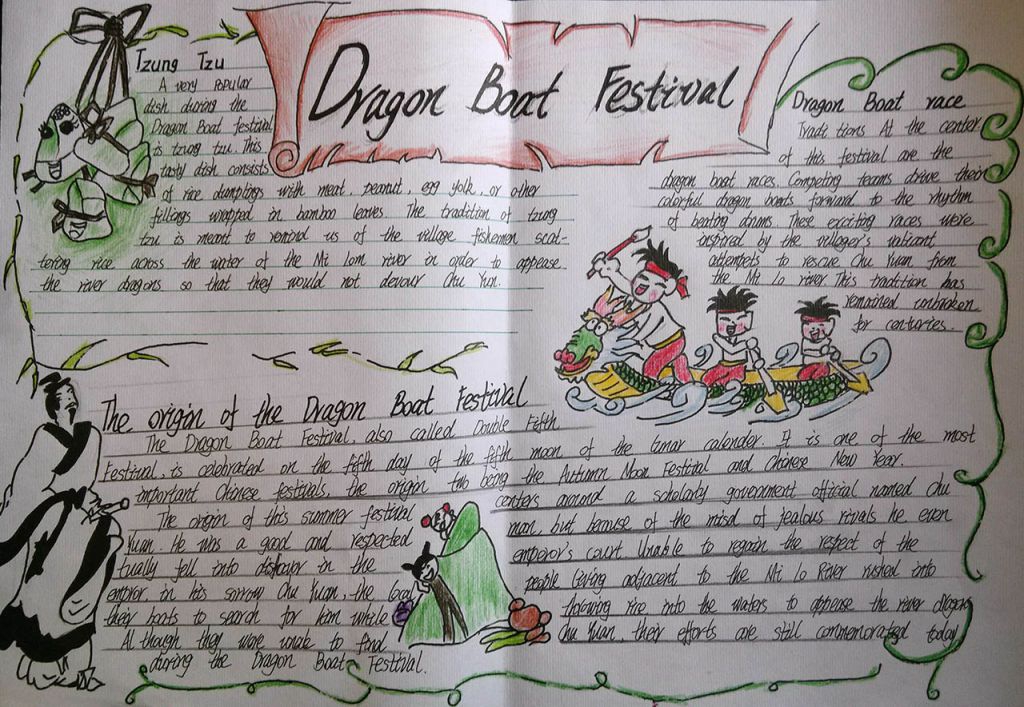 Dragon Boat Festival
Tzung Tzu
A very popular
dish during the
Dragon Boat festival
is tzung tzu. This
tasty dish consists
of rice dumplings with meat, peanut, egg yolk, or other
fillings wrapped in bamboo leaves. The tradition of tzung
tzu is meant to remind us of the village fishermen scat-
tering rice across the water of the Mi Lom river in order to appease
the river dragons so that they would not devour Chu Yun.
Dragon Boat race
Traditions At the center
of this festival are the
dragon boat races. Competing teams drive their
colorful dragon boats forward to the rhythm
of beating drums. These exciting races were
inspired by the villager's valicant
attempts to rescue Chu Yuan from
the Mi Lo river. This tradition has
remained unbroken
for centuries.
The origin of the Dragon Boat Festival
The Dragon Boat Festival, also called Double Fifth
Festival, is celebrated on the fifth day of the fifth moon of the lunar calender. It is one of the most
important Chinese festivals, the origin two being the Autumn Moon Festival and Chinese New Year.
The origin of this summer festival centers around a scholarly government official named Chu
Yuan. He was a good and respected man, but because of the misd of jealous rivals he even
tually fell into disfavor in the emperor's court. Unable to regain the respect of the
empror in his sorrow Chu Yuan, the local people living adjacent to the Mi Lo River rushed into
their boats to search for him while throwing rice into the waters to appease the river dragons
Al though they were unable to find Chu Yuan, their efforts are still commemorated today
during the Dragon Boat Festival.